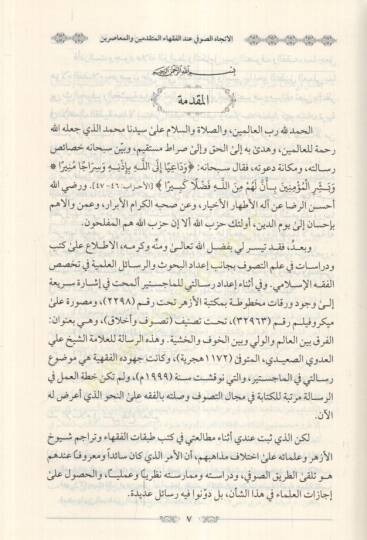 الاتجاه الصوفي عند الفقهاء المتقدمين والمعاصرين
بسم الله الرحمن الرحيم
المقدمة
الحمد لله رب العالمين، والصلاة والسلام علىٰ سيدنا محمد الذي جعله الله
رحمة للعالمين، وهدىٰ به إلىٰ الحق وإلىٰ صراط مستقيم، وبيّن سبحانه خصائص
رسالته، ومكانة دعوته، فقال سبحانه: ﴿وَدَاعِيًا إِلَى اللَّهِ بِإِذْنِهِ وَسِرَاجًا مُنِيرًا *
وَبَشِّرِ الْمُؤْمِنِينَ بِأَنَّ لَهُمْ مِنَ اللَّهِ فَضْلًا كَبِيرًا﴾ [الأحزاب: ٤٦-٤٧]. ورضي الله
أحسن الرضا عن آله الأطهار الأخيار، وعن صحبه الكرام الأبرار، وعمن والاهم
بإحسان إلىٰ يوم الدين، أولئك حزب الله ألا إن حزب الله هم المفلحون.
وبعدُ، فقد تيسر لي بفضل الله تعالىٰ ومنّه وكرمه، الاطلاع علىٰ كتب
ودراسات في علم التصوف بجانب إعداد البحوث والرسائل العلمية في تخصص
الفقه الإسلامي. وفي أثناء إعداد رسالتي للماجستير ألمحت في إشارة سريعة
إلىٰ وجود ورقات مخطوطة بمكتبة الأزهر تحت رقم (٢٢٩٨)، ومصورة علىٰ
ميكروفيلم رقم (٣٢٩٦٣)، تحت تصنيف (تصوف وأخلاق)، وهي بعنوان:
الفرق بين العالم والولي وبين الخوف والخشية. وهذه الرسالة للعلامة الشيخ علي
العدوي الصعيدي، المتوفىٰ (١١٧٢هجرية)، وكانت جهوده الفقهية هي موضوع
رسالتي في الماجستير، والتي نوقشت سنة (١٩٩٩م)، ولم تكن خطة العمل في
الرسالة مرتبة للكتابة في مجال التصوف وصلته بالفقه علىٰ النحو الذي أعرض له
الآن.
لكن الذي ثبت عندي أثناء مطالعتي في كتب طبقات الفقهاء وتراجم شيوخ
الأزهر وعلمائه علىٰ اختلاف مذاهبهم، أن الأمر الذي كان سائداً ومعروفاً عندهم
هو تلقي الطريق الصوفي، ودراسته وممارسته نظريّاً وعمليّاً، والحصول علىٰ
إجازات العلماء في هذا الشأن، بل دوّنوا فيه رسائل عديدة.
٧